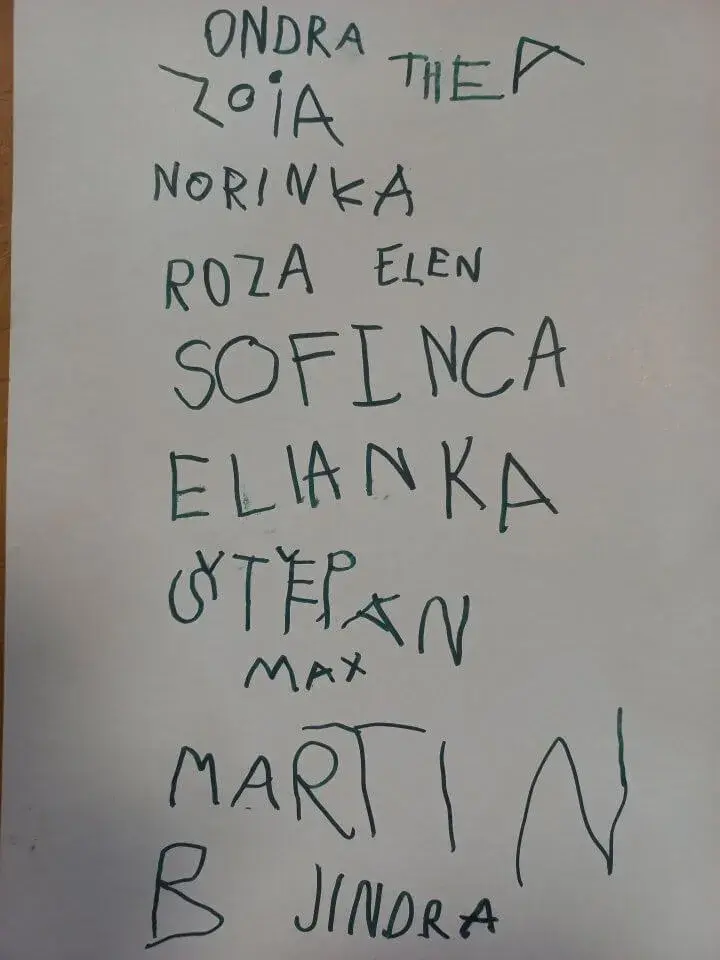 ONDRA THEA
ZOiA
NORINKA
ROZA ELEN
SOFINCA
ELIANKA
ŠTĚPAN
MAX
MARTIN
B JINDRA